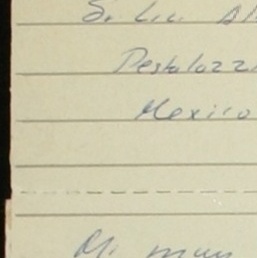 Sr. Lic. Al
Pestalozzi
Mexico
Mi muy